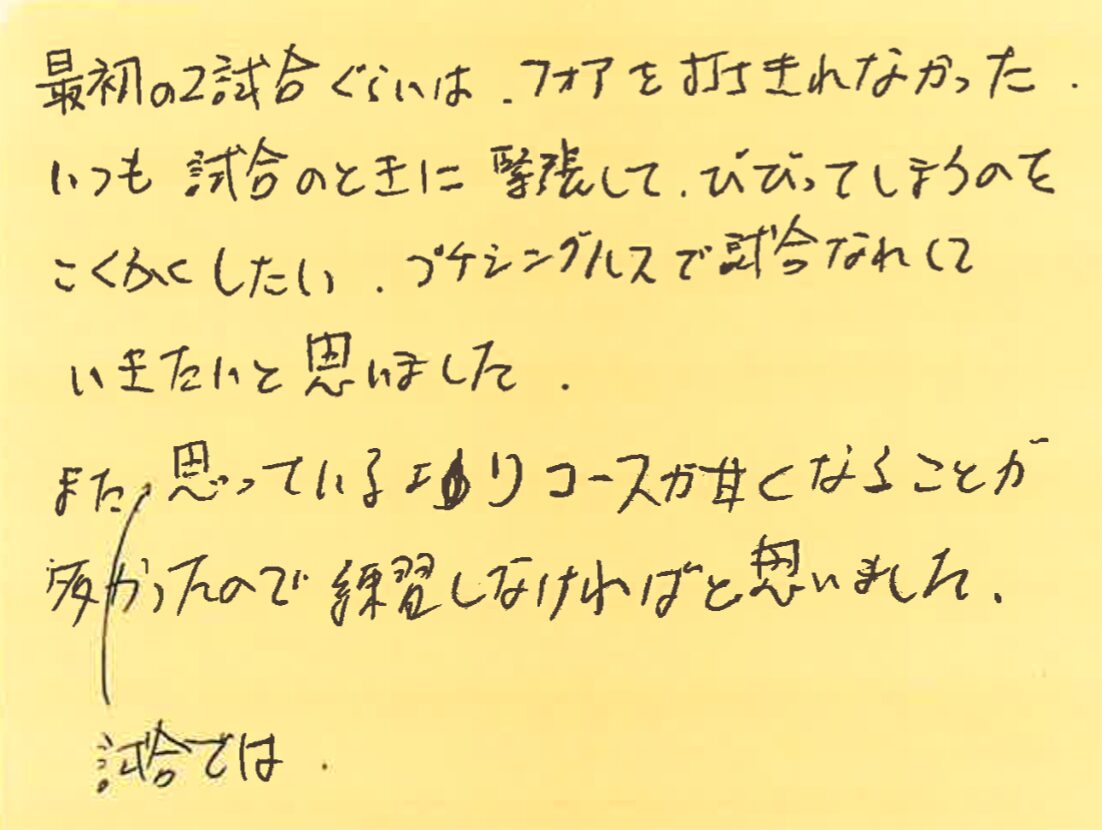 最初の2試合ぐらいは、フォアを打ちきれなかった.
いつも試合のときに緊張して、びびってしまうのを
こくふくしたい. プチシングルスで試合なれして
いきたいと思いました.
また思っているよりコースが甘くなることが
多かったので練習しなければと思いました.
試合では.